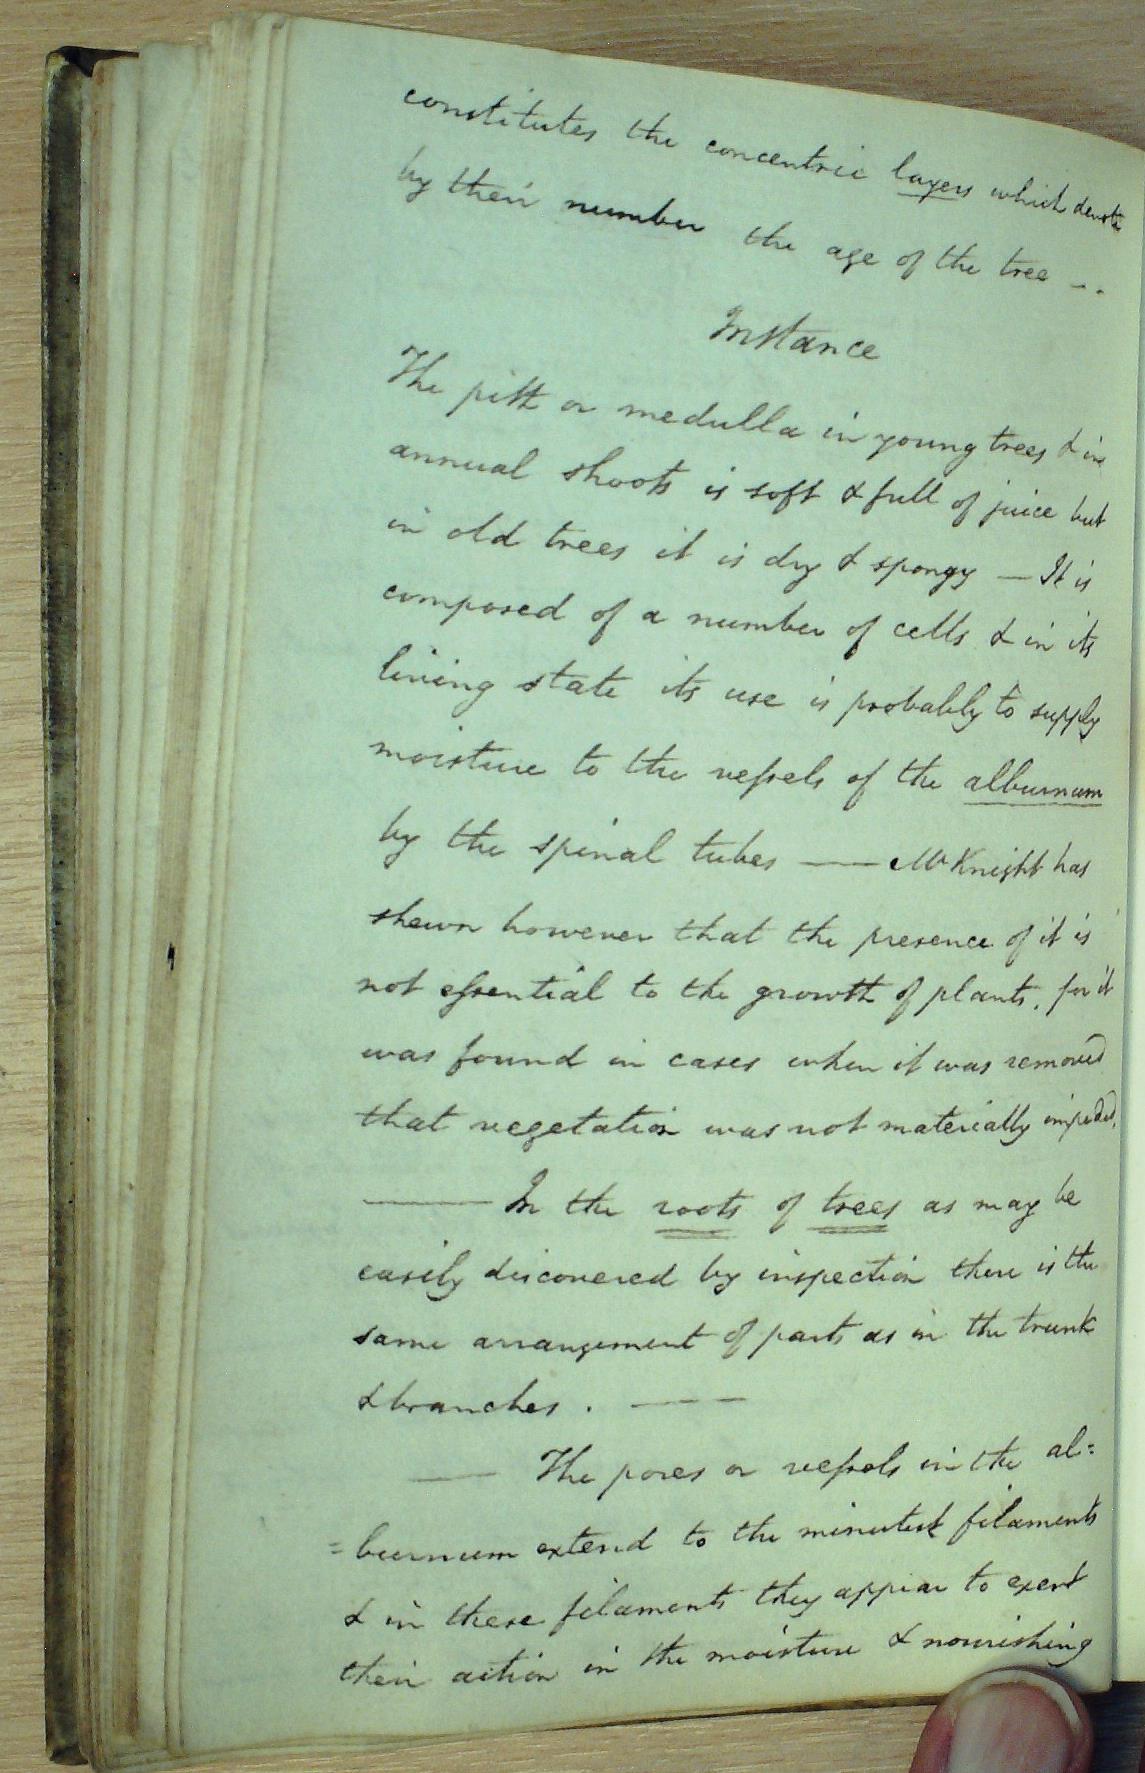 constitutes the concentric layers which denote
by their number the age of the tree --
Instance
The pith or medulla in young trees & in
annual shoots is soft & full of juice but
in old trees it is dry & spongy — It is
composed of a number of cells & in its
living state its use is probably to supply
moisture to the vessels of the alburnum
by the spinal tubes — Mr Knight has
shewn however that the presence of it is
not essential to the growth of plants, for it
was found in cases when it was removed
that vegetation was not materially impeded.
— In the roots of trees as may be
easily discovered by inspection there is the
same arrangement of parts as in the trunk
& branches. —
— The pores or vessels in the al=
=burnum extend to the minutest filaments
& in these filaments they appear to exert
their action in the moisture & nourishing